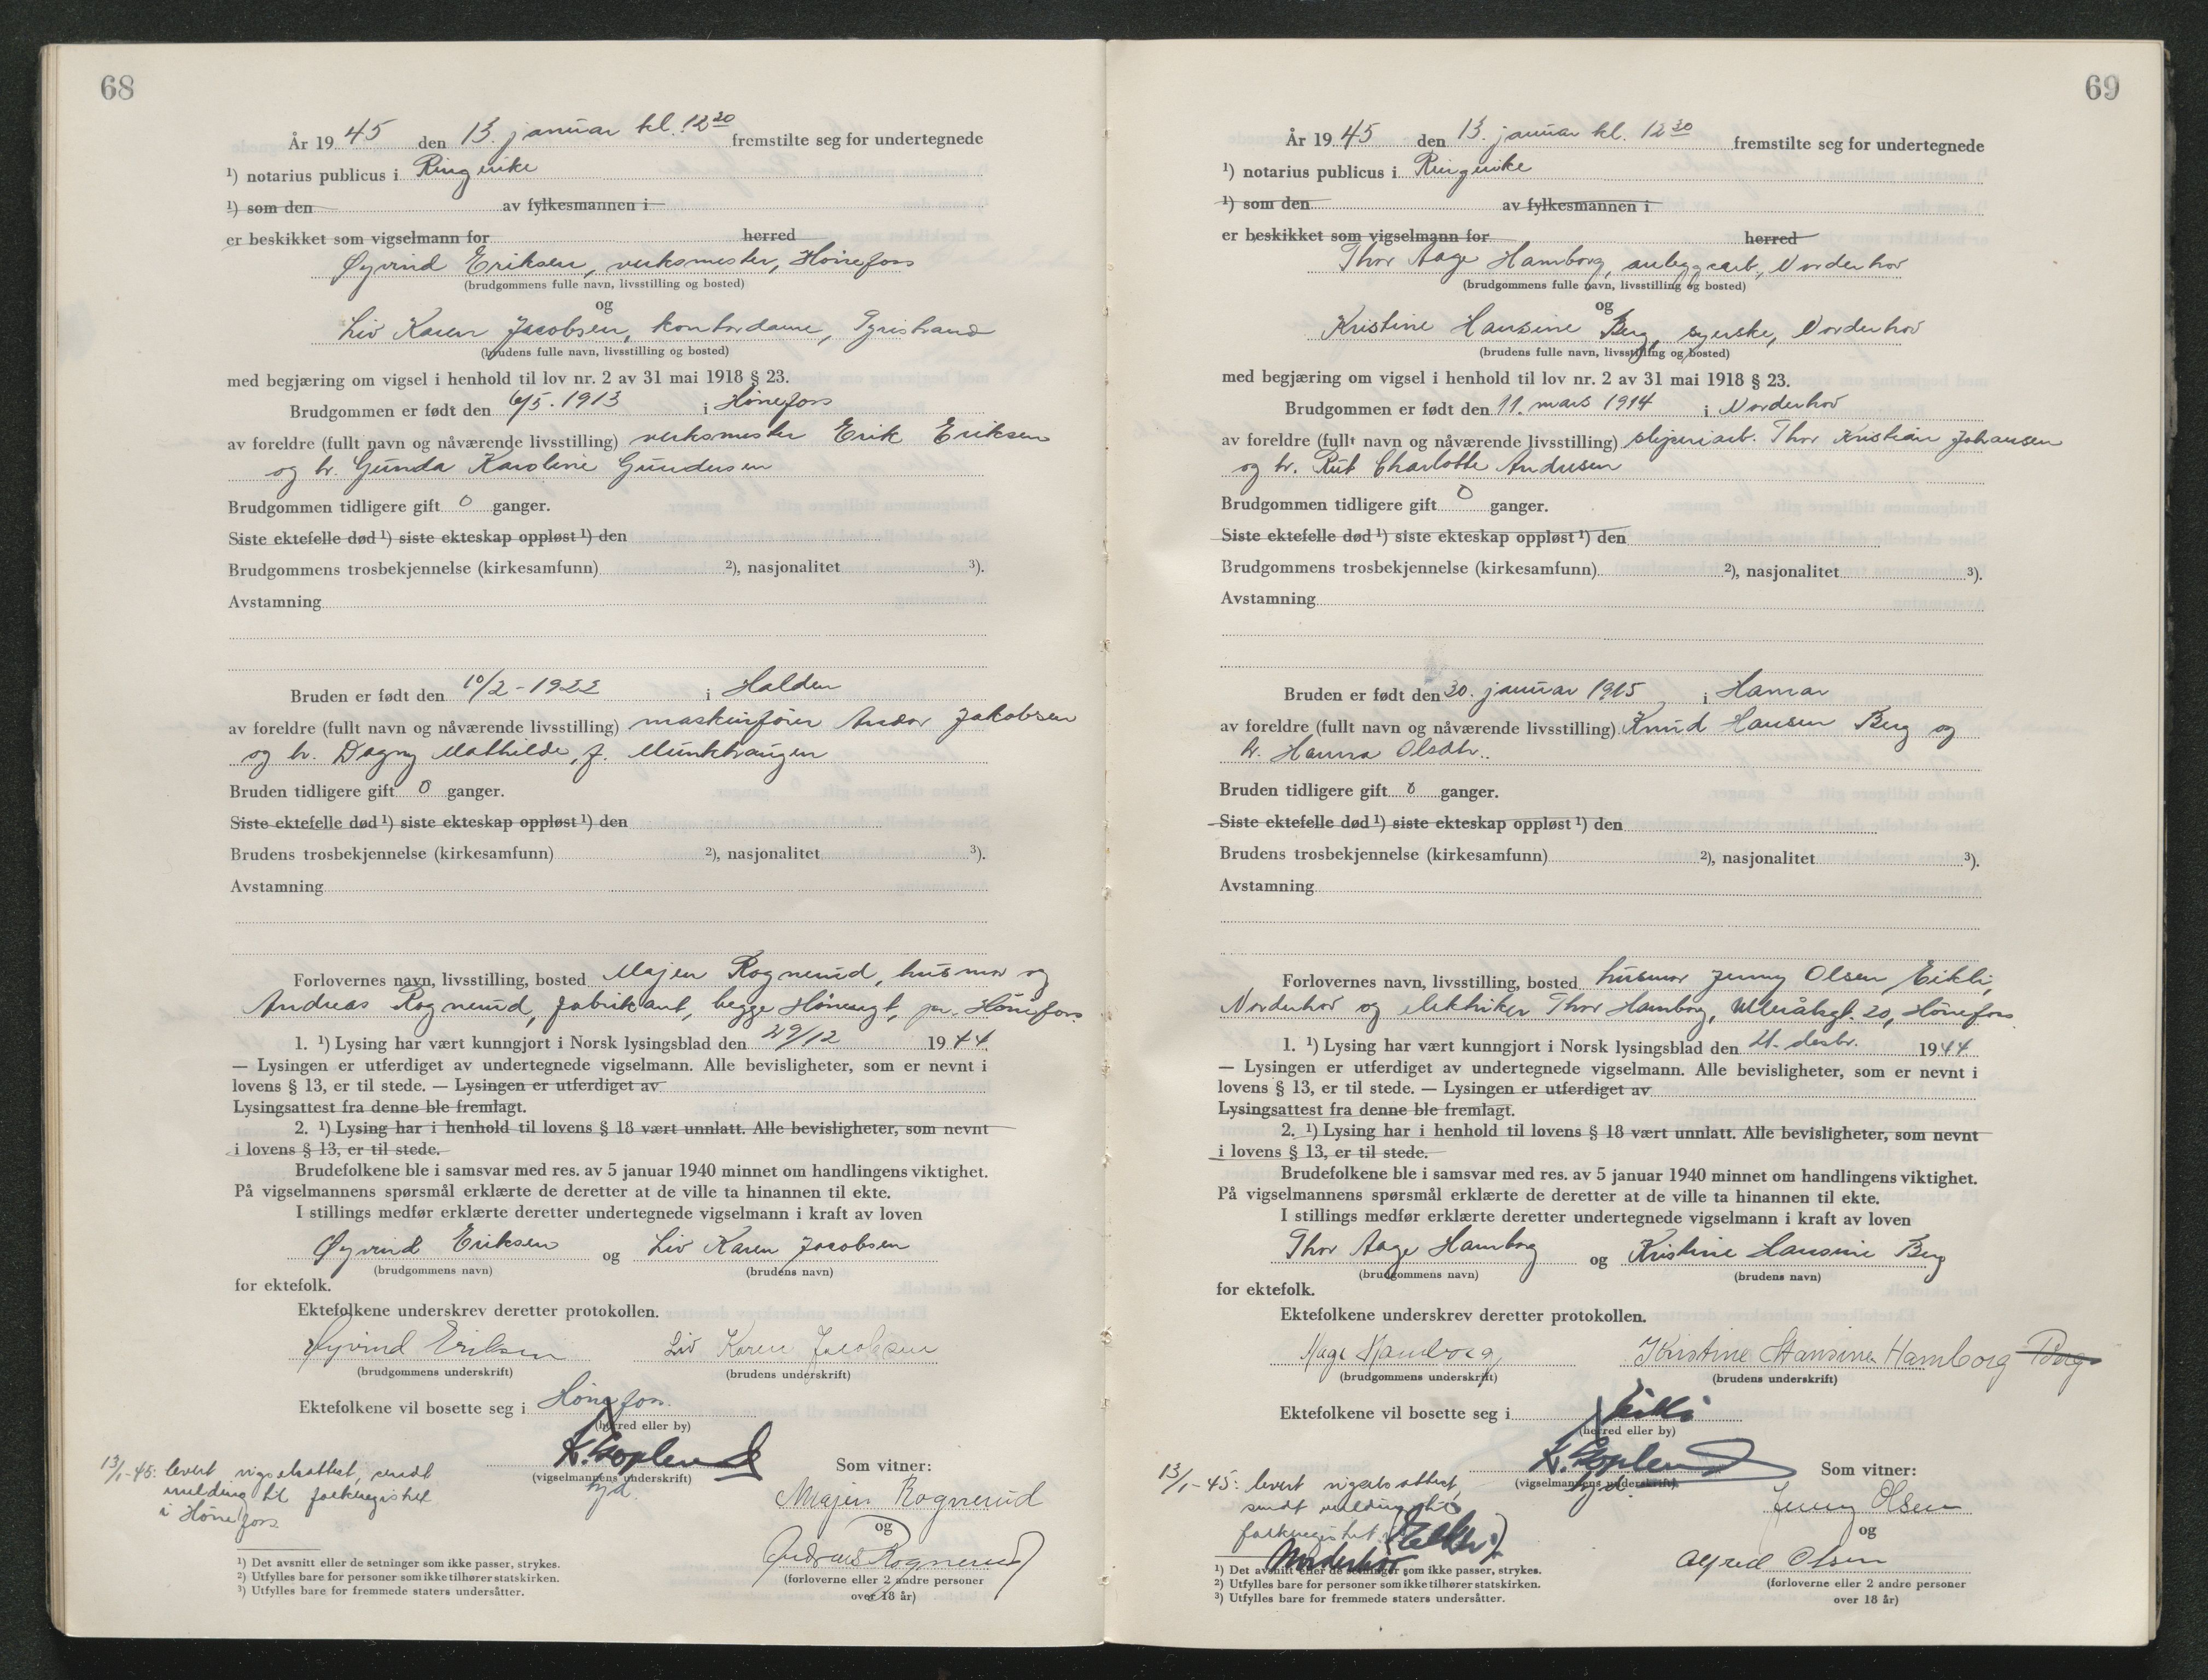 68
År 19 45 den 13. januar kl. 12 20 fremstilte seg for undertegnede
¹) notarius publicus i Ringerike
¹) som den av fylkesmannen i
er beskikket som vigselmann for herred
Øyvind Eriksen, verksmester, Hönefoss
(brudgommens fulle navn, livsstilling og bosted)
og
Liv Karen Jacobsen, kontordame, Tyristrand
(brudens fulle navn, livsstilling og bosted)
med begjæring om vigsel i henhold til lov nr. 2 av 31 mai 1918 § 23.
Brudgommen er født den 6/5. 1913 i Hönefoss
av foreldre (fullt navn og nåværende livsstilling) verksmester Erik Eriksen
og h. Gunda Karoline Gundersen
Brudgommen tidligere gift 0 ganger.
Siste ektefelle død ¹) siste ekteskap oppløst ¹) den
Brudgommens trosbekjennelse (kirkesamfunn) ²), nasjonalitet ³).
Avstamning
Bruden er født den 10/2 - 1922 i Halden
av foreldre (fullt navn og nåværende livsstilling) maskinfører Andor Jakobsen
og h. Dagny Mathilde, f. Munkhaugen
Bruden tidligere gift 0 ganger.
Siste ektefelle død ¹) siste ekteskap oppløst ¹) den
Brudens trosbekjennelse (kirkesamfunn) ²), nasjonalitet ³).
Avstamning
Forlovernes navn, livsstilling, bosted Majen Rognerud, husmor og
Andreas Rognerud, fabrikant, begge Hönengt, pr. Hönefoss
1. ¹) Lysing har vært kunngjort i Norsk lysingsblad den 29/12 19 44.
— Lysingen er utferdiget av undertegnede vigselmann. Alle bevisligheter, som er nevnt i
lovens § 13, er til stede. — Lysingen er utferdiget av
Lysingsattest fra denne ble fremlagt.
2. ¹) Lysing har i henhold til lovens § 18 vært unnlatt. Alle bevisligheter, som nevnt
i lovens § 13, er til stede.
Brudefolkene ble i samsvar med res. av 5 januar 1940 minnet om handlingens viktighet.
På vigselmannens spørsmål erklærte de deretter at de ville ta hinannen til ekte.
I stillings medfør erklærte deretter undertegnede vigselmann i kraft av loven
Øyvind Eriksen og Liv Karen Jacobsen
(brudgommens navn) (brudens navn)
for ektefolk.
Ektefolkene underskrev deretter protokollen.
Øyvind Eriksen Liv Karen Jacobsen
(brudgommens underskrift) (brudens underskrift)
Ektefolkene vil bosette seg i Hönefoss.
(herred eller by)
(vigselmannens underskrift)
Som vitner:
13/1-45: levert vigselsattest, sendt
melding til folkregistret
i Hönefoss
Majen Rognerud
og
Andreas Rognerud
(forloverne eller 2 andre personer
over 18 år)
¹) Det avsnitt eller de setninger som ikke passer, strykes.
²) Utfylles bare for personer som ikke tilhører statskirken.
³) Utfylles bare for fremmede staters undersåtter.
69
År 19 45 den 13. januar kl. 12 30 fremstilte seg for undertegnede
¹) notarius publicus i Ringerike
¹) som den av fylkesmannen i
er beskikket som vigselmann for herred
Thor Aage Hamborg, anleggsarb., Norderhov
(brudgommens fulle navn, livsstilling og bosted)
og
Kristine Hansine Berg, syerske, Norderhov
(brudens fulle navn, livsstilling og bosted)
med begjæring om vigsel i henhold til lov nr. 2 av 31 mai 1918 § 23.
Brudgommen er født den 11. mars 1914 i Norderhov
av foreldre (fullt navn og nåværende livsstilling) sliperiarb. Thor Kristian Johansen
og h. Rut Charlotte Andresen
Brudgommen tidligere gift 0 ganger.
Siste ektefelle død ¹) siste ekteskap oppløst ¹) den
Brudgommens trosbekjennelse (kirkesamfunn) ²), nasjonalitet ³).
Avstamning
Bruden er født den 30. januar 1915 i Hamar
av foreldre (fullt navn og nåværende livsstilling) Knud Hansen Berg og
h. Hanna Olsdtr.
Bruden tidligere gift 0 ganger.
Siste ektefelle død ¹) siste ekteskap oppløst ¹) den
Brudens trosbekjennelse (kirkesamfunn) ²), nasjonalitet ³).
Avstamning
Forlovernes navn, livsstilling, bosted husmor Jenny Olsen, Eikli,
Norderhov og elektriker Thor Hamborg, Ullerålsgt. 20, Hönefoss
1. ¹) Lysing har vært kunngjort i Norsk lysingsblad den 21. desbr. 19 44
— Lysingen er utferdiget av undertegnede vigselmann. Alle bevisligheter, som er nevnt i
lovens § 13, er til stede. — Lysingen er utferdiget av
Lysingsattest fra denne ble fremlagt.
2. ¹) Lysing har i henhold til lovens § 18 vært unnlatt. Alle bevisligheter, som nevnt
i lovens § 13, er til stede.
Brudefolkene ble i samsvar med res. av 5 januar 1940 minnet om handlingens viktighet.
På vigselmannens spørsmål erklærte de deretter at de ville ta hinannen til ekte.
I stillings medfør erklærte deretter undertegnede vigselmann i kraft av loven
Thor Aage Hamborg og Kristine Hansine Berg
(brudgommens navn) (brudens navn)
for ektefolk.
Ektefolkene underskrev deretter protokollen.
Aage Hamborg Kristine Hansine Hamborg Berg
(brudgommens underskrift) (brudens underskrift)
Ektefolkene vil bosette seg i Eikli
(herred eller by)
(vigselmannens underskrift)
Som vitner:
13/1-45: levert vigselsattest,
sendt melding til
folkregistret i
Norderhov
Jenny Olsen
og
Alfred Olsen
(forloverne eller 2 andre personer
over 18 år)
¹) Det avsnitt eller de setninger som ikke passer, strykes.
²) Utfylles bare for personer som ikke tilhører statskirken.
³) Utfylles bare for fremmede staters undersåtter.